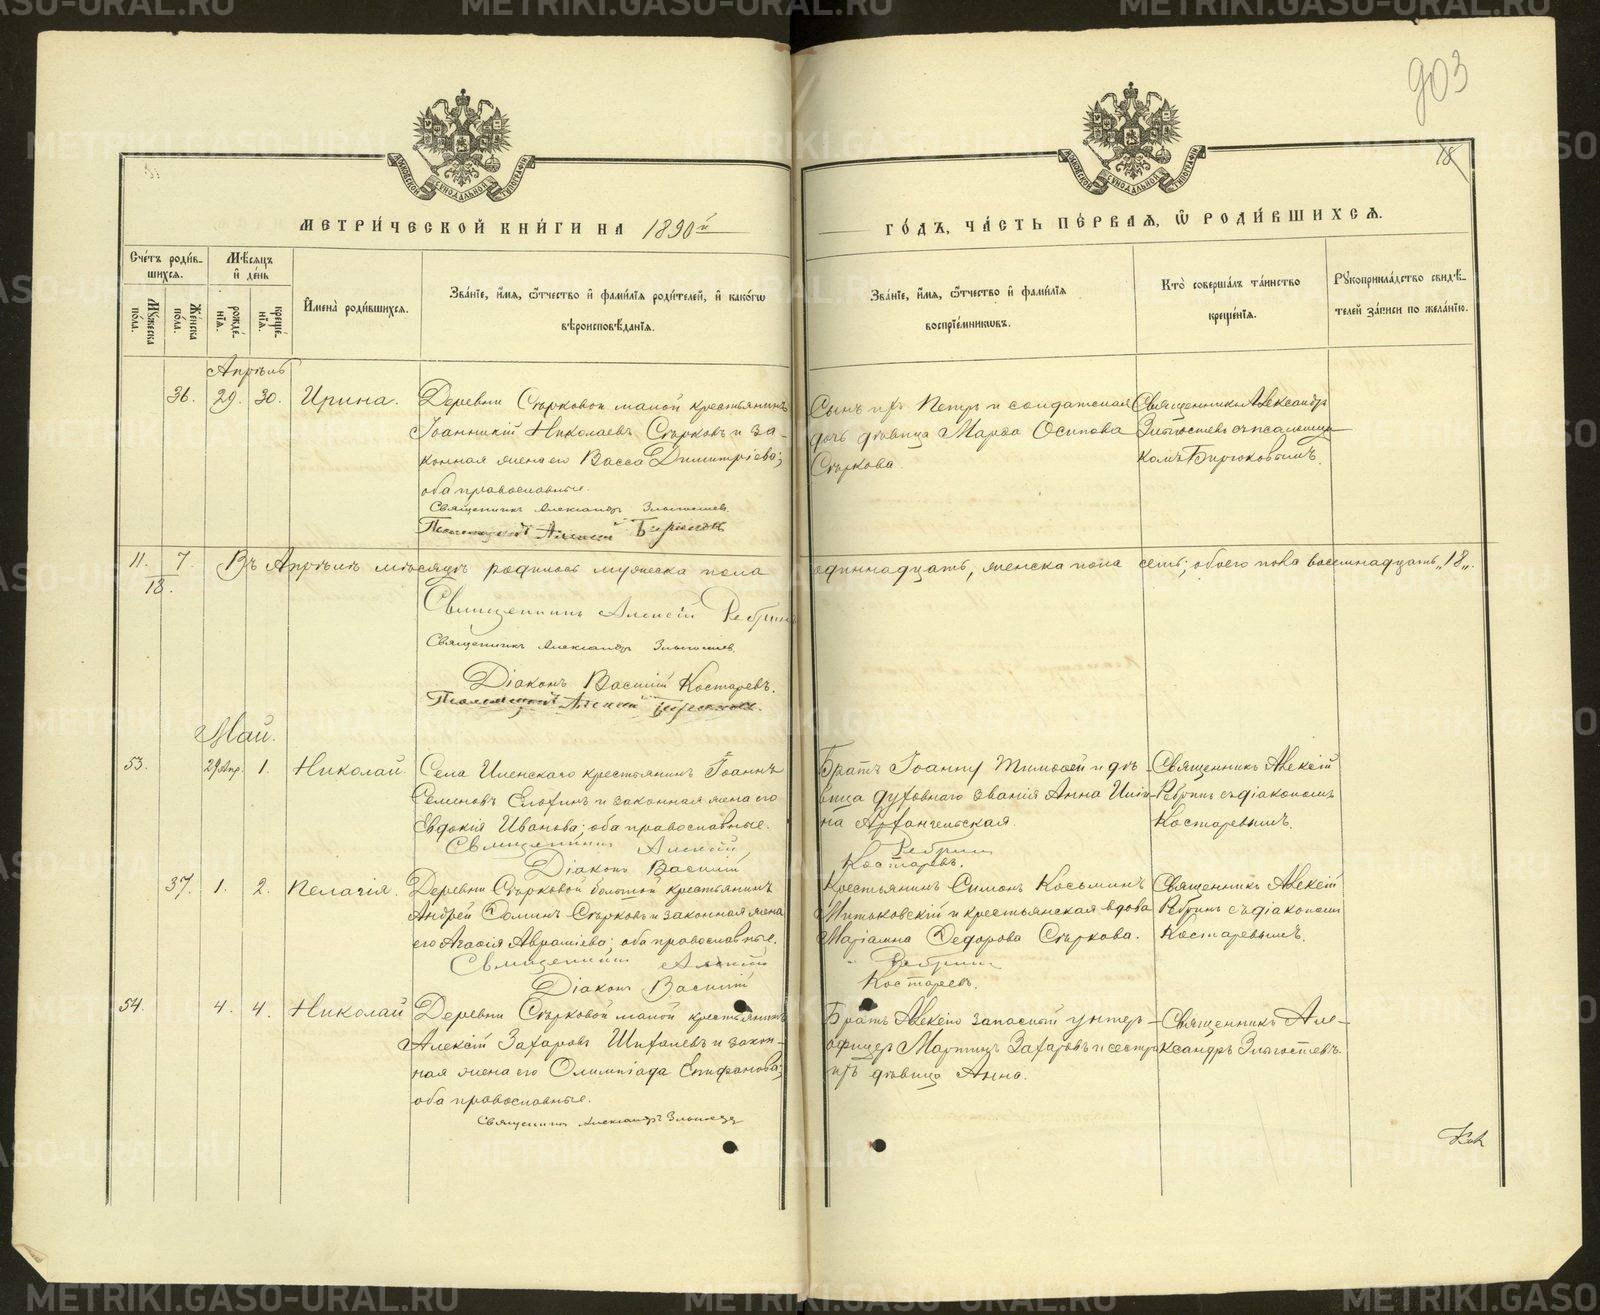 903
18
МОСКОВСКОЙ СѴНОДАЛЬНОЙ ТИПОГРАФІИ
МОСКОВСКОЙ СѴНОДАЛЬНОЙ ТИПОГРАФІИ
МЕТРИ́ЧЕСКОЙ КНИ́ГИ НА 1890й
ГО́ДЪ, ЧА́СТЬ ПЕ́РВАЯ, Ѡ РОДИ́ВШИХСЯ.
Сче́тъ роди́в-
шихся.
Мꙋжеска по́ла.
Же́нска по́ла.
Мѣ́сяцъ и де́нь
рожде́нїя.
креще́нїя.
Имена̀ роди́вшихся.
Зва́нїе, и́мя, ѻ҆́тчество и фами́лїя роди́телей, и како́гѡ
вѣроисповѣ́данїя.
Зва́нїе, и́мя, ѻ҆́тчество и фами́лїя
воспрїе́мникѡвъ.
Кто̀ соверша́лъ та́инство
креще́нїя.
Рꙋкоприкла́дство свидѣ́-
телей за́писи по жела́нїю.
Апрѣль
36. 29. 30. Ирина.
Деревни Сѣрковой малой крестьянинъ
Іоанникій Николаевъ Сѣрковъ и за-
конная жена его Васса Димитріева;
оба православные.
Священникъ Александръ Златостевъ
Псаломщикъ Алексій Бирюковъ
Сынъ ихъ Петръ и солдатская
дочь дѣвица Марѳа Осипова
Сѣркова.
Священникъ Александръ
Златостевъ съ псаломщи-
комъ Бирюковымъ.
11. 7.
18.
Въ Апрѣлѣ мѣсяцѣ родилось мужеска пола
одиннадцать, женска пола семь; обоего пола восемнадцать „18„.
Священникъ Алексій Ребринъ
Священникъ Александръ Златостевъ.
Діаконъ Василій Костаревъ.
Псаломщикъ Алексій Бирюковъ.
Май.
53. 29 Апр. 1. Николай
Села Иленскаго крестьянинъ Іоаннъ
Семеновъ Елохинъ и законная жена его
Евдокія Иванова; оба православные.
Священникъ Алексій
Діаконъ Василій
Братъ Іоанну Тимоѳей и дѣ-
вица духовнаго званія Анна Ильи-
на Архангельская.
Ребринъ
Костаревъ.
Священникъ Алексій
Ребринъ съ діакономъ
Костаревымъ.
37. 1. 2. Пелагія.
Деревни Сѣрковой большой крестьянинъ
Андрей Ѳоминъ Сѣрковъ и законная жена
его Агаѳія Авраміева; оба православные.
Священникъ Алексій
Діаконъ Василій
Крестьянинъ Симонъ Косьминъ
Митьковскій и крестьянская вдова
Маріамна Ѳедорова Сѣркова.
Ребринъ
Костаревъ.
Священникъ Алексій
Ребринъ съ діакономъ
Костаревымъ.
54. 4. 4. Николай
Деревни Сѣрковой малой крестьянинъ
Алексій Захаровъ Шихалевъ и закон-
ная жена его Олимпіада Епифанова;
оба православные.
Священникъ Александръ Златостевъ
Братъ Алексію запасный унтеръ-
офицеръ Мартинъ Захаровъ и сестра
ихъ дѣвица Анна.
Священникъ Але-
ксандръ Златостевъ.
METRIKI.GASO-URAL.RU